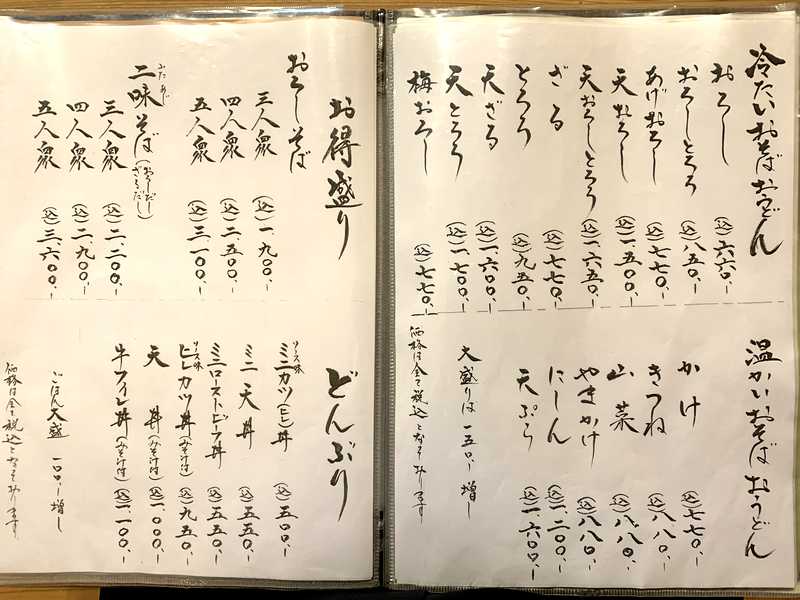 冷たいおそばおうどん
おろし (込)六六〇、-
おろしとろろ (込)八五〇、-
あげおろし (込)七七〇、-
天おろし (込)一、五〇〇、-
天おろしとろろ (込)一、六五〇、-
ざる (込)七七〇、-
とろろ (込)九五〇、-
天ざる (込)一、六〇〇、-
天とろろ (込)一、七〇〇、-
梅おろし (込)七七〇、-
温かいおそばおうどん
かけ (込)七七〇、-
きつね (込)八八〇、-
山菜 (込)八八〇、-
やまかけ (込)八八〇、-
にしん (込)一、二〇〇、-
天ぷら (込)一、六〇〇、-
大盛りは一五〇、-増し
価格は全て税込となっております
お得盛り
おろしそば
三人衆 (込)一、九〇〇、-
四人衆 (込)二、五〇〇、-
五人衆 (込)三、一〇〇、-
ふたあじ
二味そば(おろしだし ざるだし)
三人衆 (込)二、二〇〇、-
四人衆 (込)二、九〇〇、-
五人衆 (込)三、六〇〇、-
どんぶり
ソース味
ミニカツ(ヒレ)丼 (込)五〇〇、-
ミニ天丼 (込)五五〇、-
ミニローストビーフ丼 (込)五五〇、-
ソース味
ヒレカツ丼(みそ汁付) (込)九五〇、-
天丼(みそ汁付) (込)一、〇〇〇、-
牛フィレ丼(みそ汁付) (込)一、一〇〇、-
ごはん大盛 一〇〇、-増し
価格は全て税込となっております